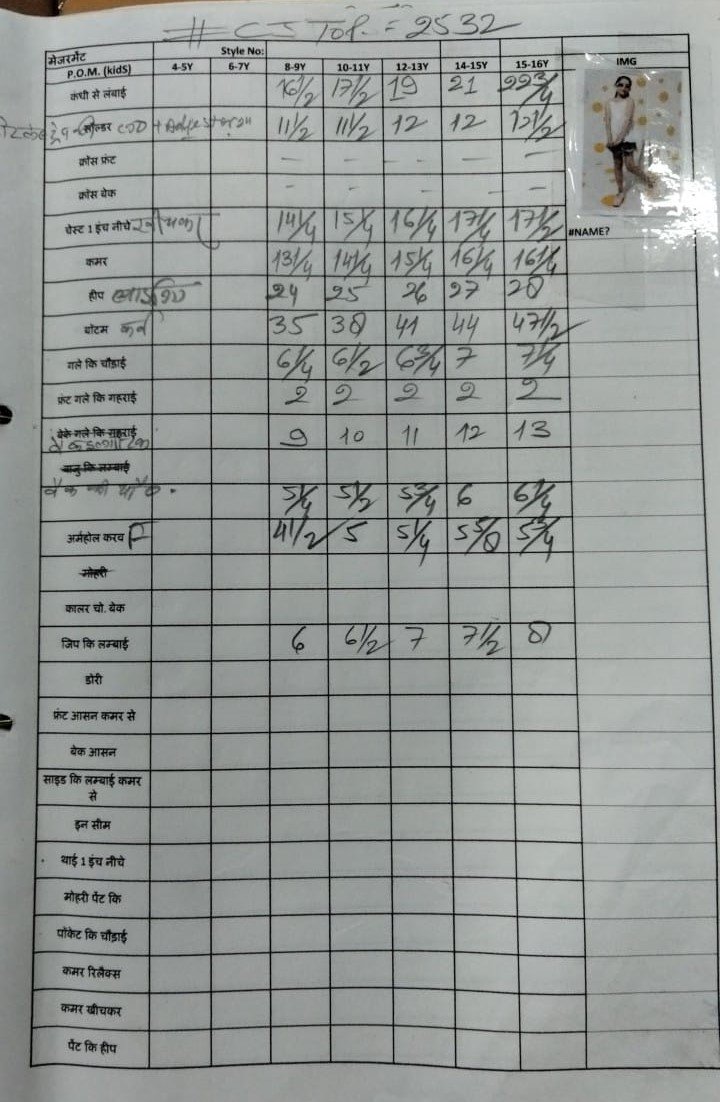 # CJ Top. = 2532
मेजरमेंट Style No:
P.O.M. (kidS) 4-5Y 6-7Y 8-9Y 10-11Y 12-13Y 14-15Y 15-16Y IMG
कंधी से लंबाई 16½ 17½ 19 21 22¾
11½ 11½ 12 12 12½
क्रोस फ्रंट - - - - -
क्रोस बेक - - - - -
चेस्ट 1 इंच नीचे 14¼ 15¼ 16¼ 17¼ 17½ #NAME?
कमर 13¼ 14¼ 15¼ 16¼ 16¼
हीप 24 25 26 27 28
बोटम कर्व 35 38 41 44 47½
गले कि चौड़ाई 6¼ 6½ 6¾ 7 7¼
फ्रंट गले कि गहराई 2 2 2 2 2
बेके गले कि गहराई 9 10 11 12 13
बाजु कि लम्बाई
5¼ 5½ 5¾ 6 6¼
अर्महोल करव F 4½ 5 5¼ 5⅝ 5¾
मोहरी
कालर चो. बेक
जिप कि लम्बाई 6 6½ 7 7½ 8
डोरी
फ्रंट आसन कमर से
बेक आसन
साइड कि लम्बाई कमर
से
इन सीम
थाई 1 इंच नीचे
मोहरी पेंट कि
पॉकेट कि चौड़ाई
कमर रिलैक्स
कमर खीचकर
पेंट कि हीप